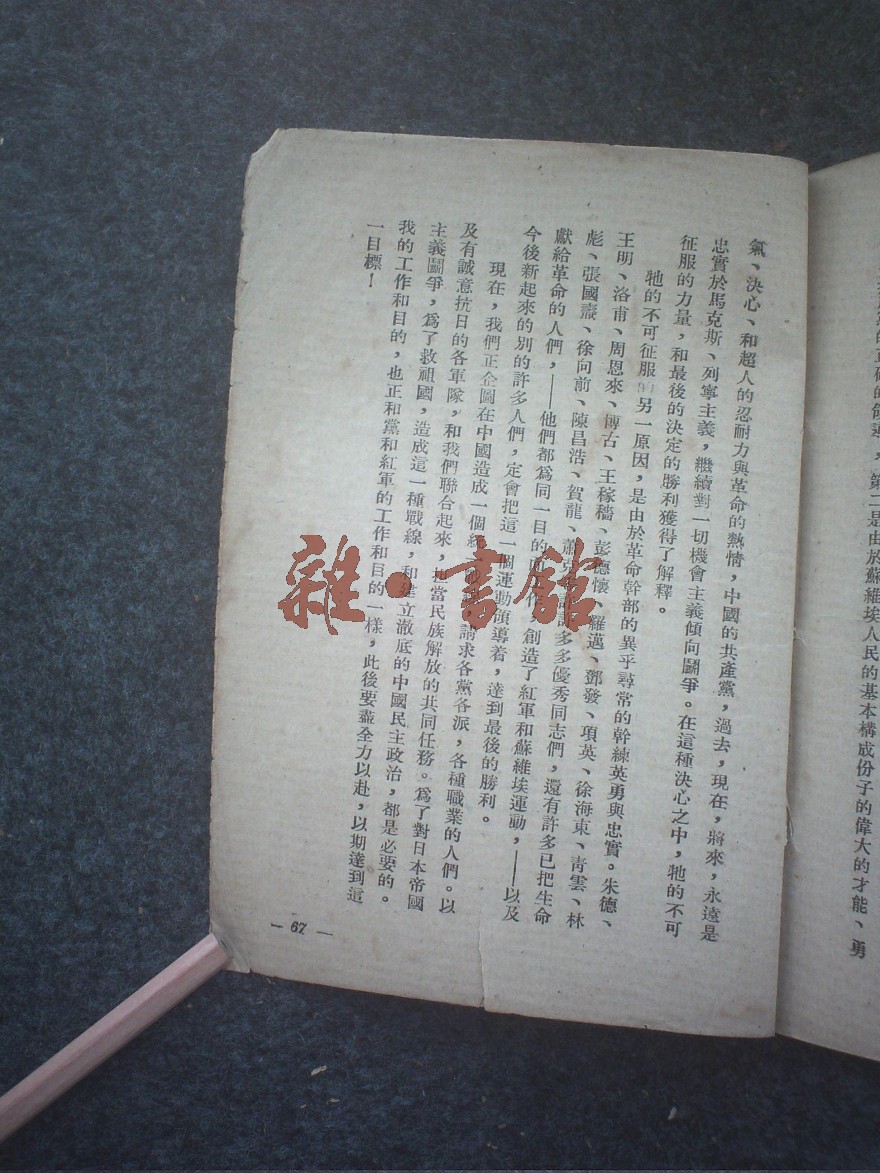 第二是由於蘇維埃人民的基本構成份子的偉大的才能、勇
氣、決心、和超人的忍耐力與革命的熱情，中國的共產黨，過去，現在，將來，永遠是
忠實於馬克斯、列寧主義，繼續對一切機會主義傾向鬪爭。在這種決心之中，牠的不可
征服的力量，和最後的決定的勝利獲得了解釋。
牠的不可征服的另一原因，是由於革命幹部的異乎尋常的幹練英勇與忠實。朱德、
王明、洛甫、周恩來、博古、王稼穡、彭德懷、羅邁、鄧發、項英、徐海東、青雲、林
彪、張國燾、徐向前、陳昌浩、賀龍、蕭克許多多優秀同志們，還有許多已把生命
獻給革命的人們，——他們都爲同一目的而工作，創造了紅軍和蘇維埃運動，——以及
今後新起來的別的許多人們，定會把這一個運動領導着，達到最後的勝利。
現在，我們正企圖在中國造成一個統請求各黨各派，各種職業的人們。以
及有誠意抗日的各軍隊，和我們聯合起來，担當民族解放的共同任務。爲了對日本帝國
主義鬪爭，爲了救祖國，造成這一種戰線，和建立澈底的中國民主政治，都是必要的。
我的工作和目的，也正和黨和紅軍的工作和目的一樣，此後要盡全力以赴，以期達到這
一目標！
— 67 —
雜·書舘